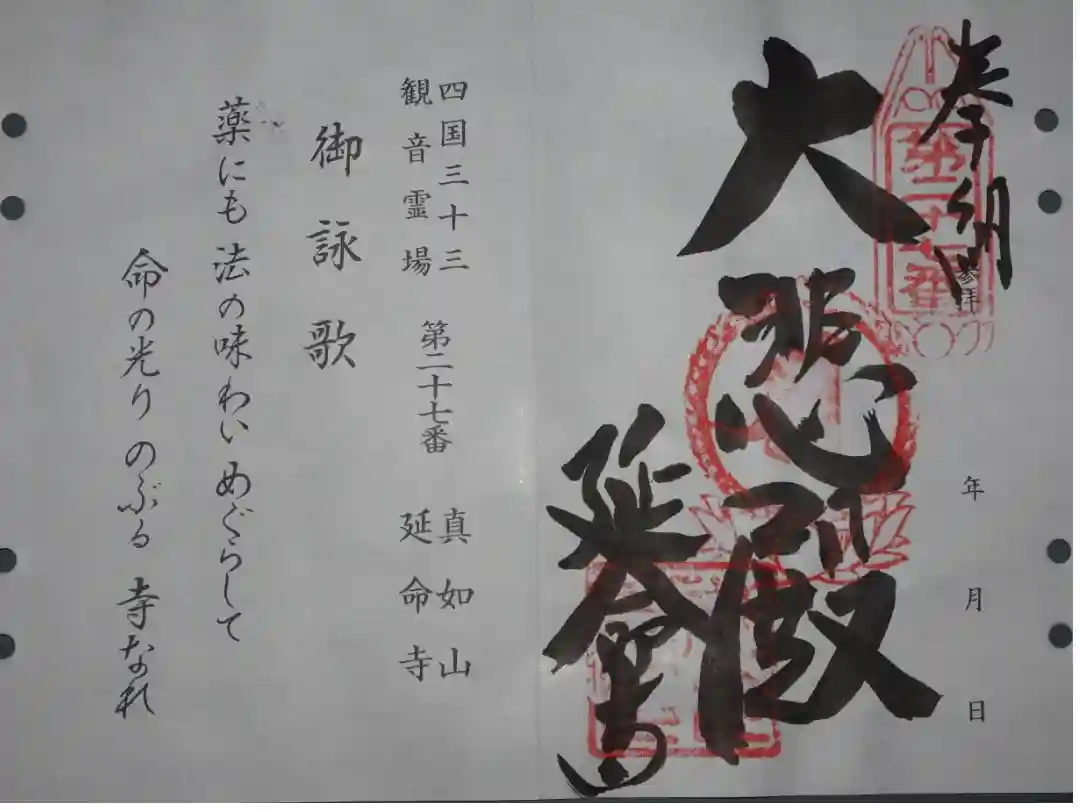 奉納
参拝
年 月 日
大悲殿
延命寺
四国三十三
観音霊場
第二十七番
真如山
延命寺
御詠歌
薬にも 法の味わい めぐらして
命の光り のぶる 寺なれ